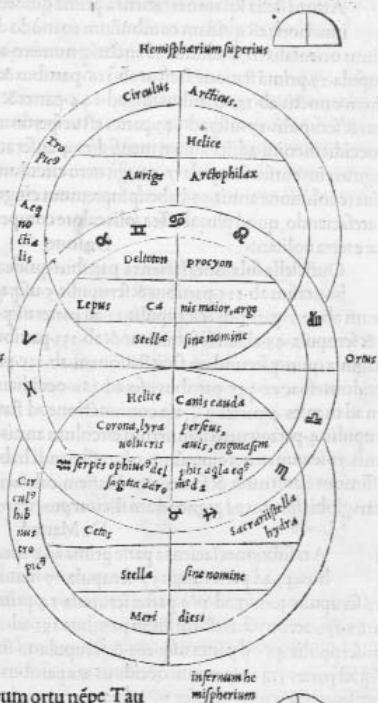 Hemisphærium superius
Circulus Arcticus.
Tro
pic9
Helice
Auriga Arctophilax
Aeq
no
ctia
lis
♉ ♊ ♋ ♌
Deltoton procyon
Lepus Ca nis maior, argo
Stellæ sine nomine
♈
♍
Ortus
♓
♎
Helice Canis cauda
Corona, lyra perseus,
uolucris auis, engonasim
♒ serpẽs ophiuc9 del phis aq̃la eq9
♏
sagitta
Cir
cul9
hib
nus
tro
pic9
Cetus
Sacrariũ stella
hydra
Stellæ sine nomine
Meri diesi
infernum he
mispherium
um ortu nẽpe Tau